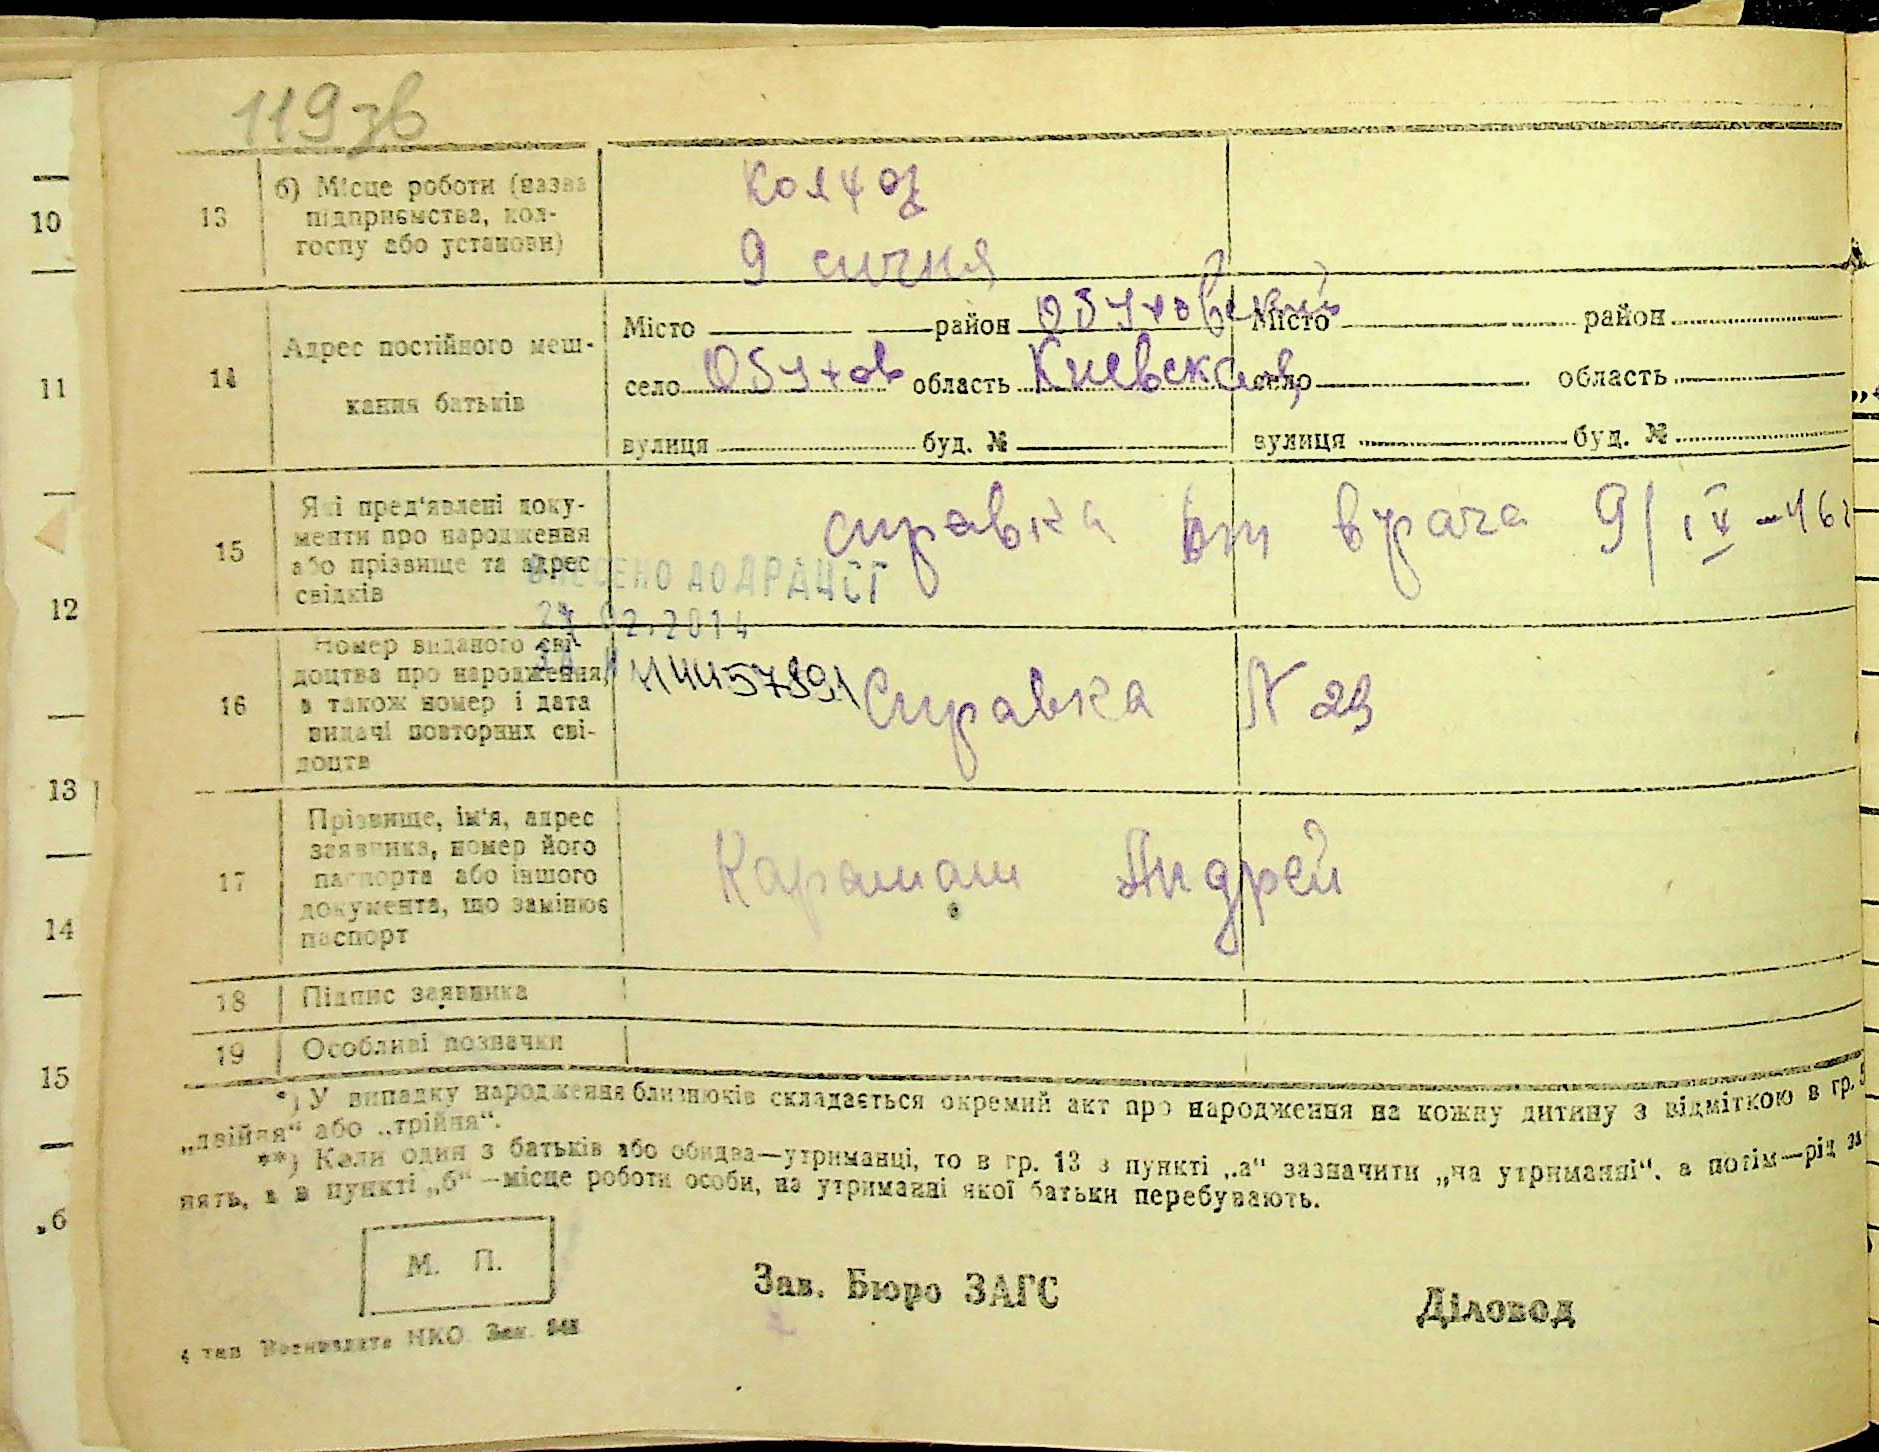 119зв
10
11
12
13
14
15
„6
13
б) Місце роботи (назва
підприємства, кол-
госпу або установи)
Колхоз
9 сичня
14
Адрес постійного меш-
кання батьків
Місто район Обуховский
село Обухов область Киевская
вулиця буд. №
Місто район
село область
вулиця буд. №
15
Які пред'явлені доку-
менти про народження
або прізвище та адрес
свідків
справка от врача 9/IV-46г
ВНЕСЕНО ДО ДРАЦСГ
02.2014
16
Номер виданого сві-
доцтва про народження,
а також номер і дата
видачі повторних сві-
доцтв
Справка N 29
17
Прізвище, ім'я, адрес
заявника, номер його
паспорта або іншого
документа, що замінює
паспорт
Карамаш Андрей
18
Підпис заявника
19
Особливі позначки
*) У випадку народження близнюків складається окремий акт про народження на кожну дитину з відміткою в гр. 5
„двійня“ або „трійня“.
**) Коли один з батьків або обидва—утриманці, то в гр. 13 в пункті „а“ зазначити „на утриманні“, а потім—рід за
нять, а в пункті „б“ —місце роботи особи, на утриманні якої батьки перебувають.
М. П.
Зав. Бюро ЗАГС
Діловод
НКО Зам.